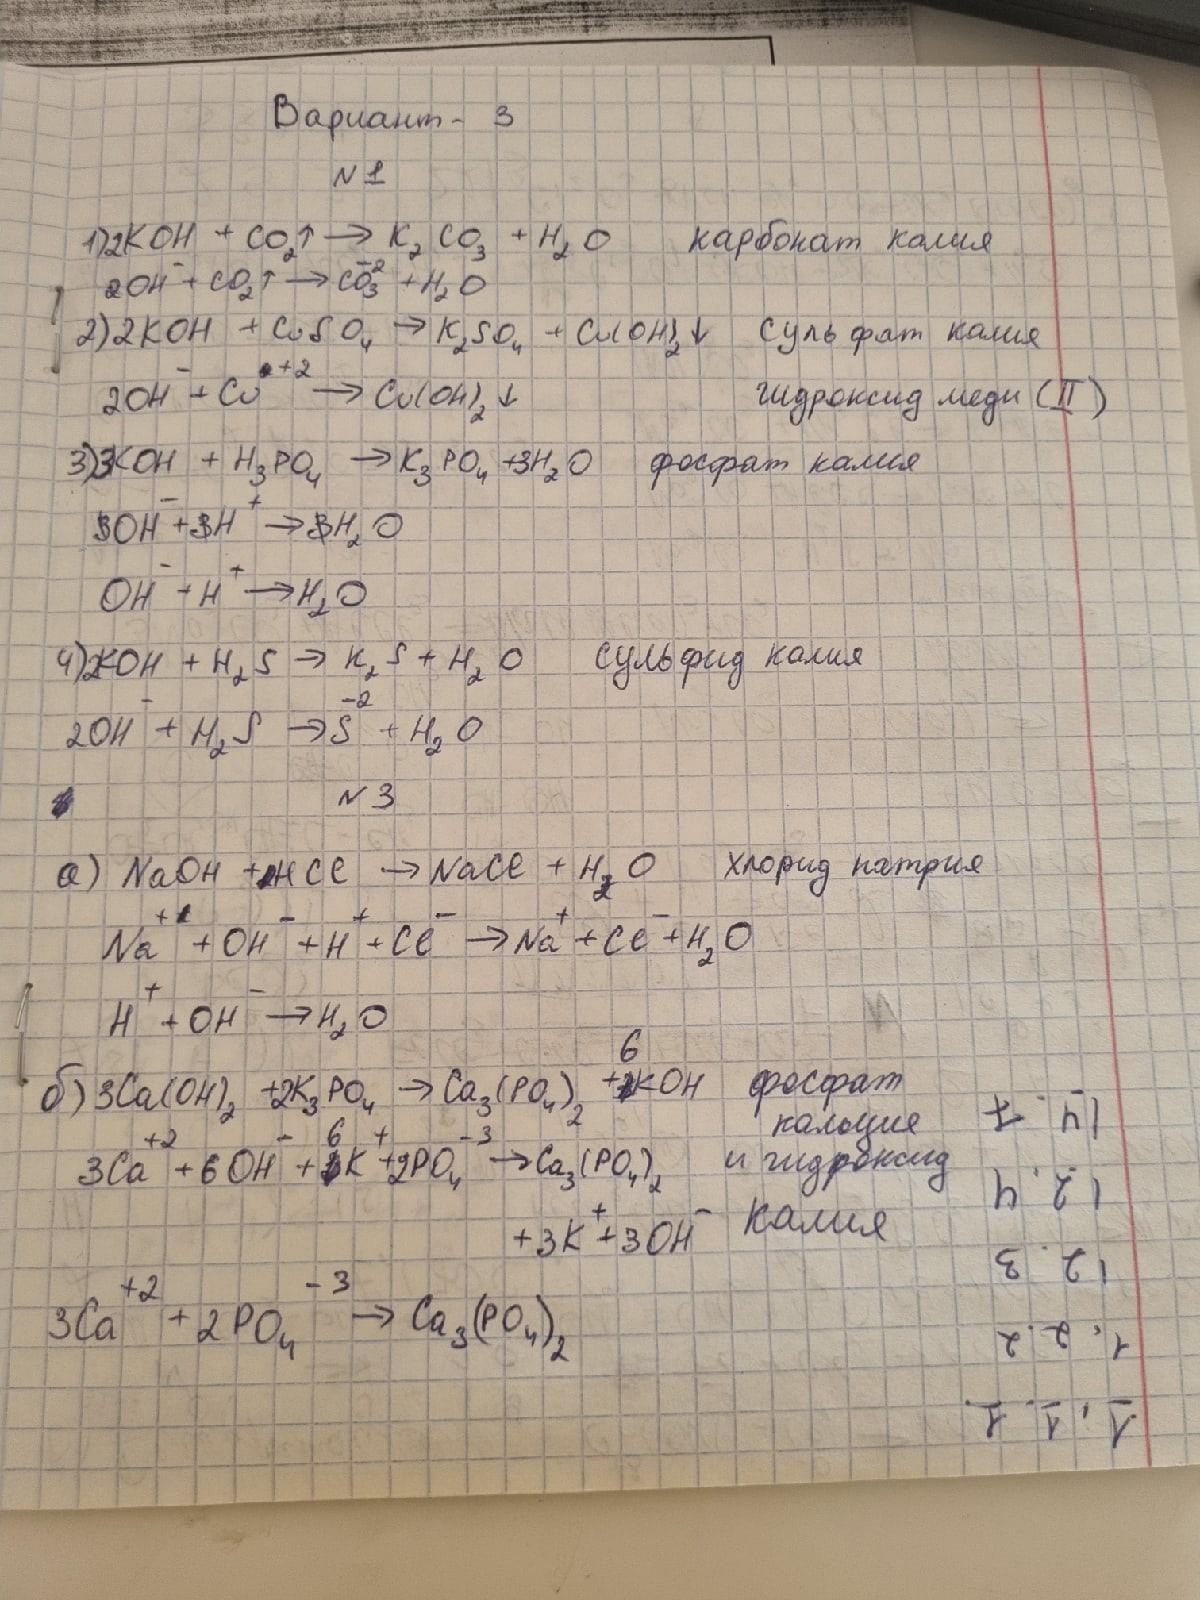 Вариант - 3
N 1
1) 2KOH + CO₂↑ → K₂CO₃ + H₂O карбонат калия
2OH⁻ + CO₂↑ → CO₃⁻² + H₂O
2) 2KOH + CuSO₄ → K₂SO₄ + Cu(OH)₂↓ сульфат калия
2OH⁻ + Cu⁺² → Cu(OH)₂↓ гидроксид меди (II)
3) 3KOH + H₃PO₄ → K₃PO₄ + 3H₂O фосфат калия
3OH⁻ + 3H⁺ → 3H₂O
OH⁻ + H⁺ → H₂O
4) 2KOH + H₂S → K₂S + H₂O сульфид калия
2OH⁻ + H₂S → S⁻² + H₂O
N 3
а) NaOH + HCl → NaCl + H₂O хлорид натрия
Na⁺ + OH⁻ + H⁺ + Cl⁻ → Na⁺ + Cl⁻ + H₂O
H⁺ + OH⁻ → H₂O
б) 3Ca(OH)₂ + 2K₃PO₄ → Ca₃(PO₄)₂ + 6KOH фосфат
кальция
3Ca⁺² + 6OH⁻ + 6K⁺ + 2PO₄⁻³ → Ca₃(PO₄)₂ и гидроксид
+ 3K⁺ + 3OH⁻ калия
3Ca⁺² + 2PO₄⁻³ → Ca₃(PO₄)₂
1, 1. 1.
1, 2. 2
12. 3
12. 4
14. 1